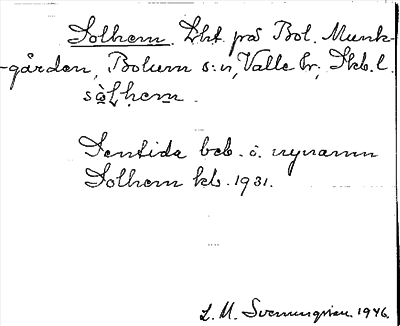 Solhem. Lht på Bol. Munk-
-gården, Bolum s:n, Valle hr; Skb. l.
sòLhem.
Sentida beb. o. nynamn
Solhem kb. 1931.
L. M. Svenungsson. 1946.